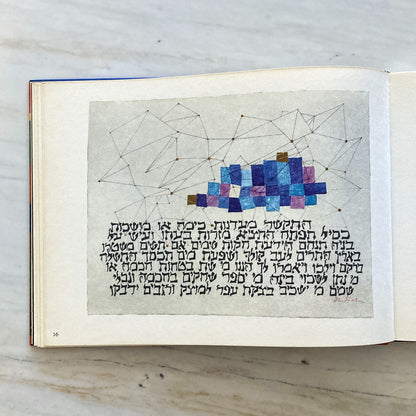 התקשר מעדנות כימה או מושכות
כסיל תפתח התציא מזרות בעתו ועיש על
בניה תנחם הידעת חקות שמים אם תשים משטרו
בארץ התרים לעב קולך ושפעת מים תכסך התשלח
ברקים וילכו ויאמרו לך הננו מי שת בטחות חכמה או
מי נתן לשכוי בינה מי יספר שחקים בחכמה ונבלי
שמים מי ישכיב בצקת עפר למוצק ורגבים ידבקו
16